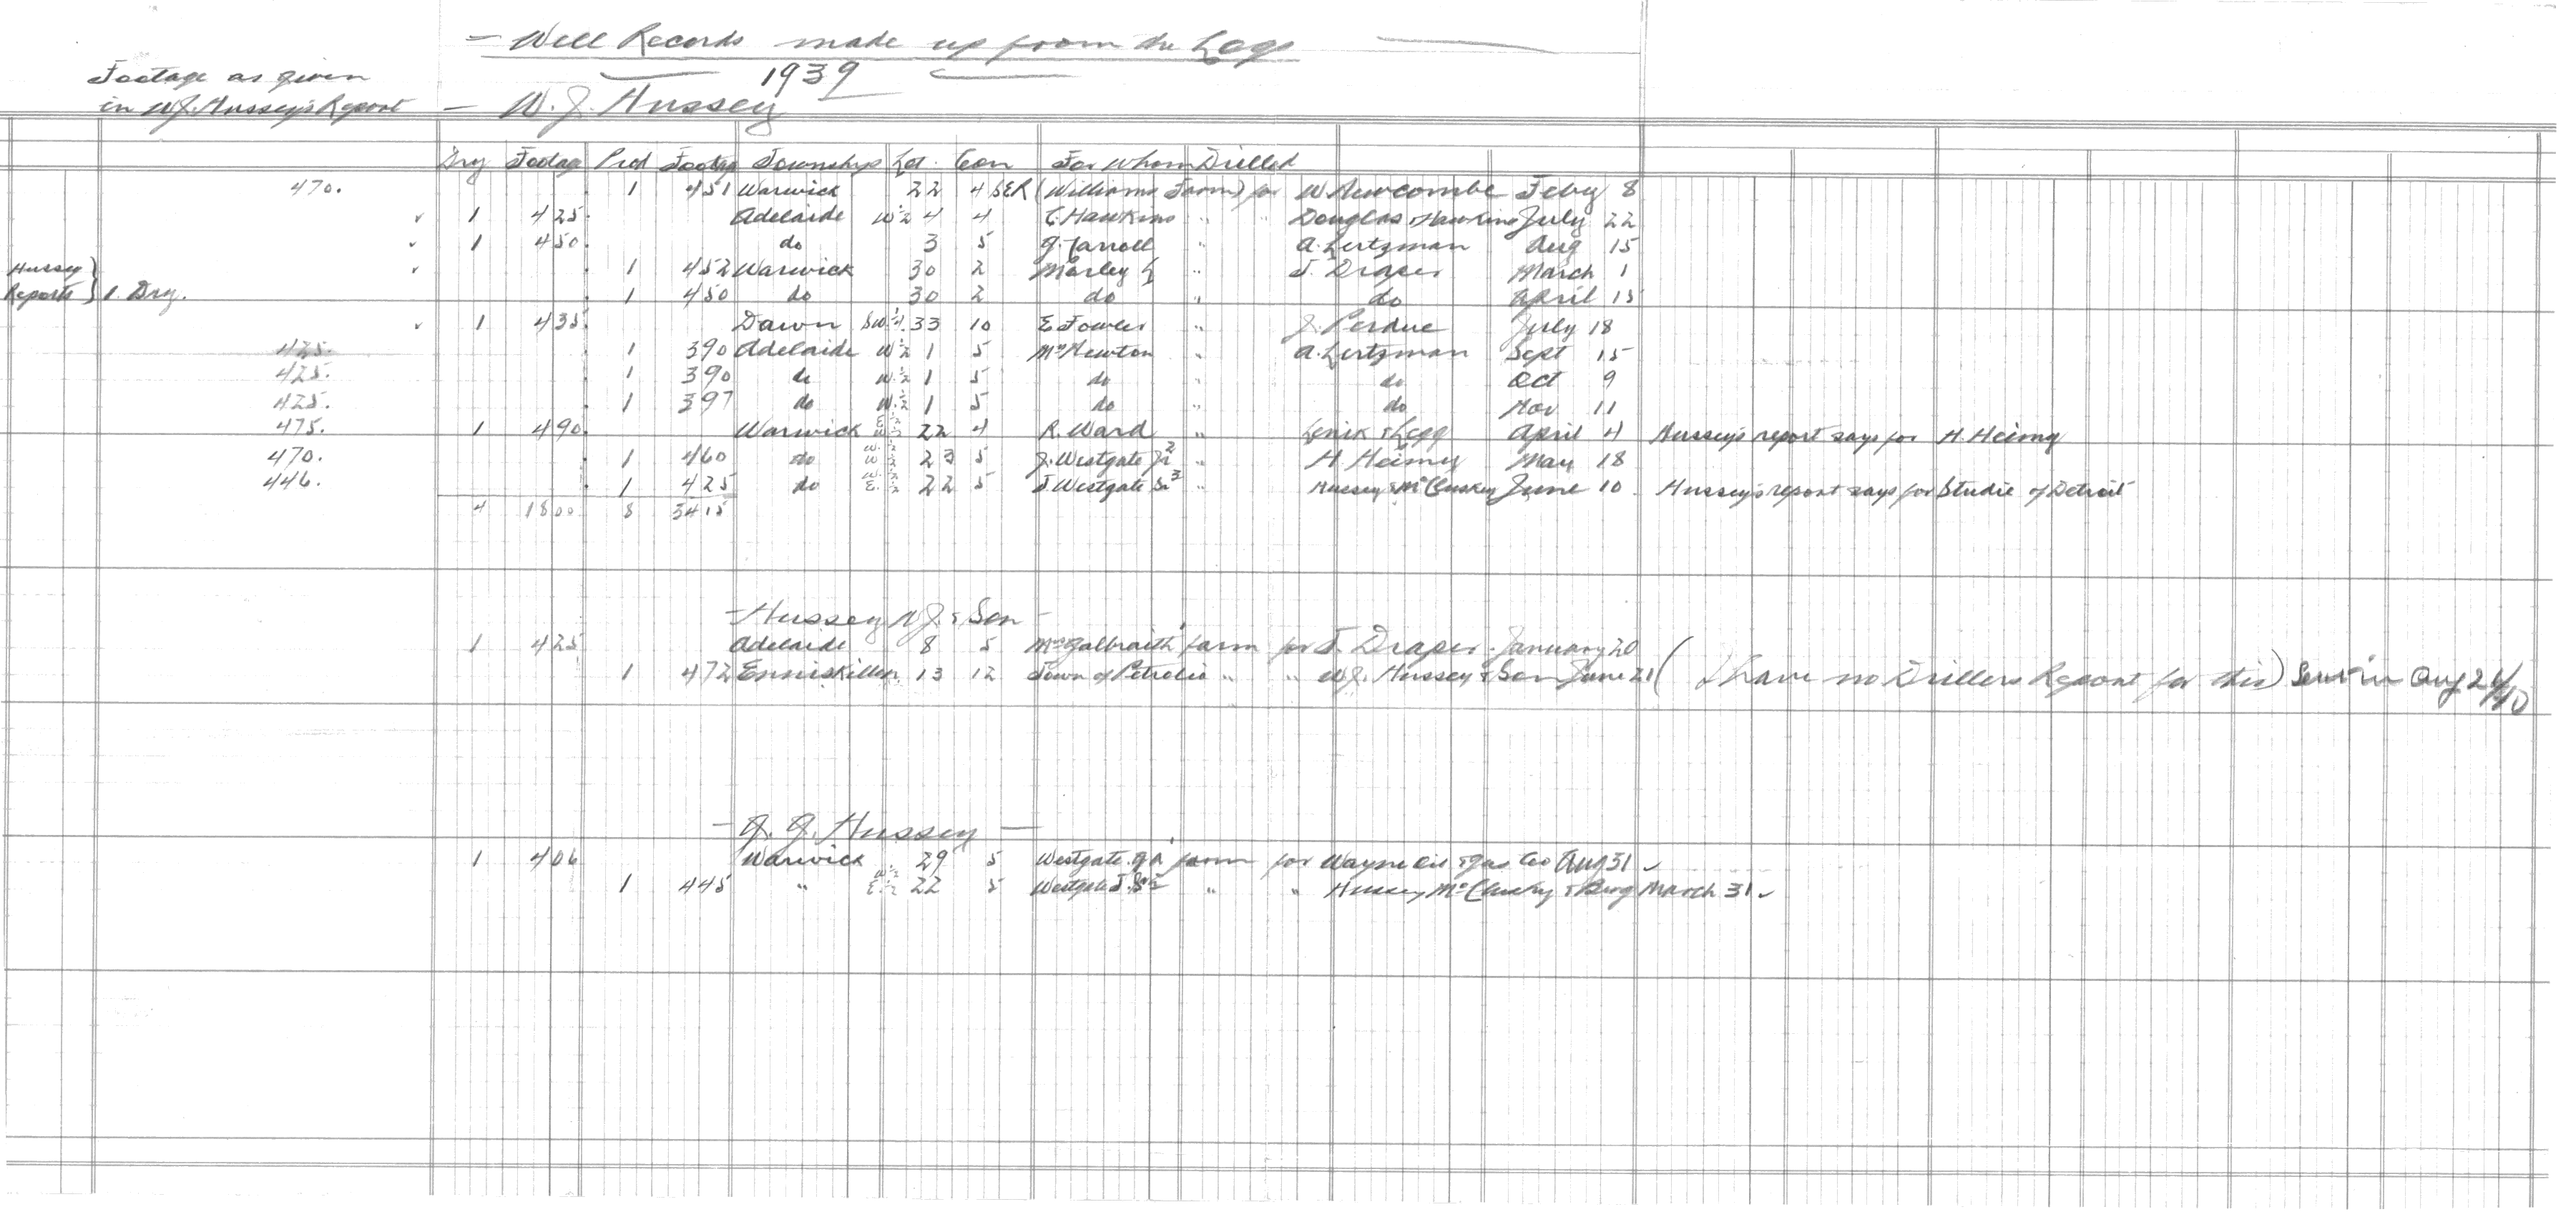 — Well Records made up from the Logs
1939
Footage as given
in W.J. Hussey's Report — W. J. Hussey
Dry Footage Prod Footage Township Lot. Con For Whom Drilled
470. 1 451 Warwick 22 4 SER (Williams Farm) for W Newcombe Feby 8
✓ 1 425 Adelaide W½ 4 4 C. Hawkins " Douglas & Hawkins July 22
✓ 1 450 do 3 5 J. Carroll " A. Lertzman Aug 15
Hussey } ✓ 1 452 Warwick 30 2 Morley " J. Draper March 1
Reports } 1. Dry. 1 450 do 30 2 do " do April 15
✓ 1 435 Dawn SW¼ 33 10 E Fowler " J. Perdue July 18
425. 1 390 Adelaide W½ 1 5 McNewton " A. Lertzman Sept 15
425. 1 390 do W.½ 1 5 do " do Oct 9
425. 1 397 do W.½ 1 5 do " do Nov 11
475. 1 490 Warwick E½ W½ 22 4 R. Ward " Lenik & Legg April 4 Hussey's report says for H. Heimy
470. 1 460 do W½ W½ 23 5 J. Westgate Jr 2 " H Heimy May 18
446. 1 425 do W.½ E.½ 22 5 J Westgate Sr 3 " Hussey & McCluskey June 10 Hussey's report says for Studie of Detroit
4 1800 8 3415
— Hussey W.J. & Son —
1 425 Adelaide 8 5 McGalbraith farm for J. Draper. January 20
1 472 Enniskillen 13 12 Town of Petrolia " " W.J. Hussey & Son June 21 (I have no Drillers Report for this) Sent in Aug 26/40
— J. J. Hussey —
1 406 Warwick 29 5 Westgate farm for Wayne Oil & Gas Co Aug 31 ✓
1 445 " W.½ E.½ 22 5 Westgate J. Sr " " Hussey McCluskey & Berg March 31 ✓